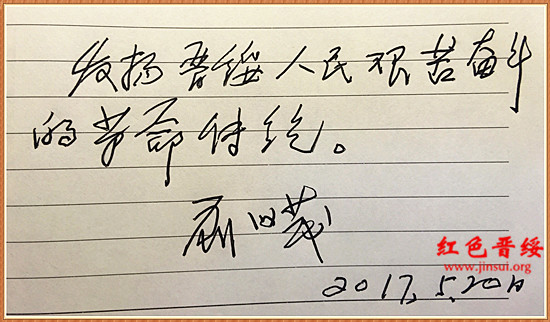 发扬晋绥人民艰苦奋斗
的革命传统。
红色晋绥
www.jinsui.org
2017.5.20日